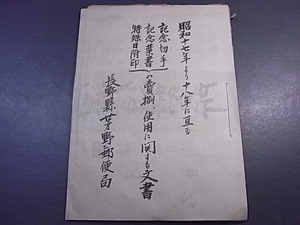 昭和十七年より十八年に亘る
記念切手
記念葉書
特殊日附印
の賣捌使用に関する文書
長野縣茅野郵便局